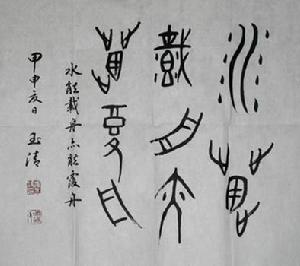 水能
載舟亦
能覆舟
水能載舟亦能覆舟
甲申亥日 玉清